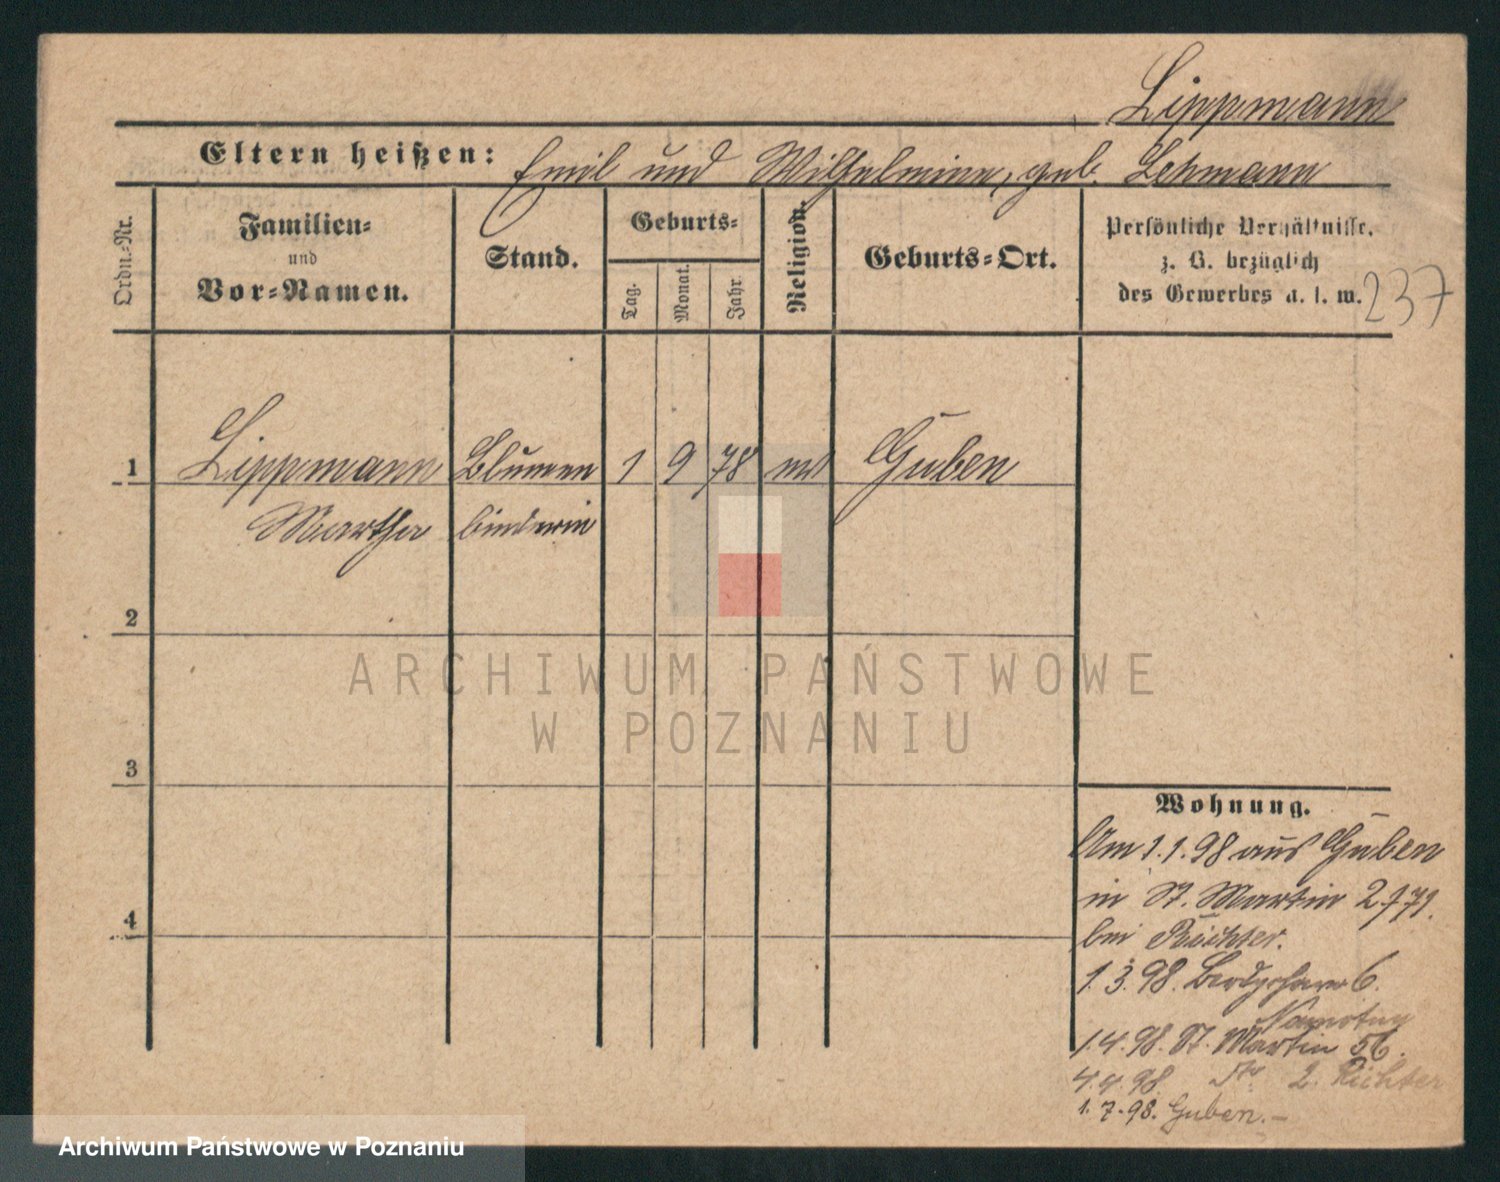 Lippmann
Eltern heißen: Emil und Wilhelmine, geb. Lehmann
Ordn.-Nr.
Familien-
und
Vor-Namen.
Stand.
Geburts-
Tag.
Monat.
Jahr.
Religion.
Geburts-Ort.
Persönliche Verhältnisse,
z. B. bezüglich
des Gewerbes u. s. w.
237
1 Lippmann Blumen 1 9 78 Guben
Martha binderin
2
3
4
Wohnung.
Am 1.1.98 aus Guben
in St. Martin 2
bei Richter.
1.3.98. 6.
1.4.98. St. Martin 56.
4.4.98. 2. Richter
1.7.98. Guben.-
ARCHIWUM PAŃSTWOWE
W POZNANIU
Archiwum Państwowe w Poznaniu